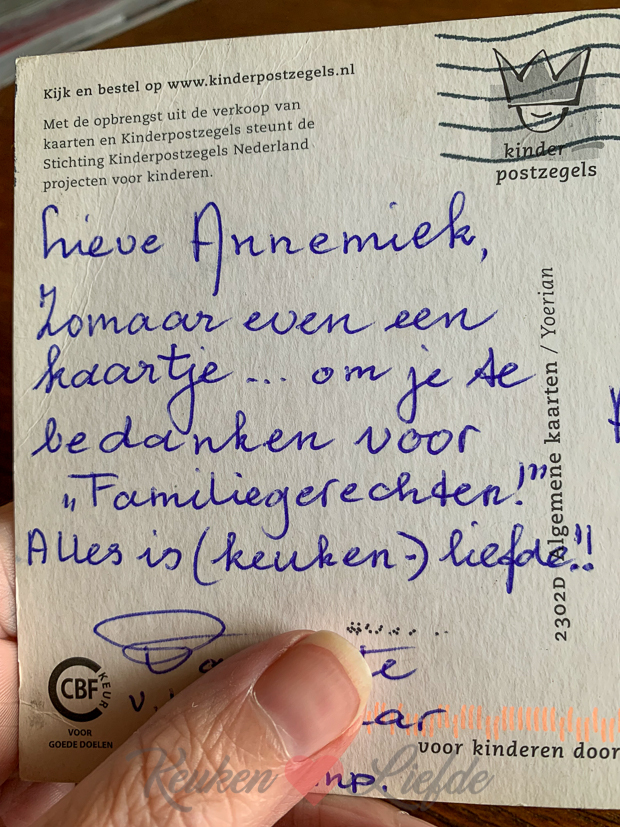 Kijk en bestel op www.kinderpostzegels.nl
Met de opbrengst uit de verkoop van
kaarten en Kinderpostzegels steunt de
Stichting Kinderpostzegels Nederland
projecten voor kinderen.
kinder
postzegels
Lieve Annemiek,
Zomaar even een
kaartje... om je te
bedanken voor
„Familiegerechten!”
Alles is (keuken-) liefde!!
2302D Algemene kaarten / Yoerian
CBF
KEUR
VOOR
GOEDE DOELEN
voor kinderen door
Keuken Liefde